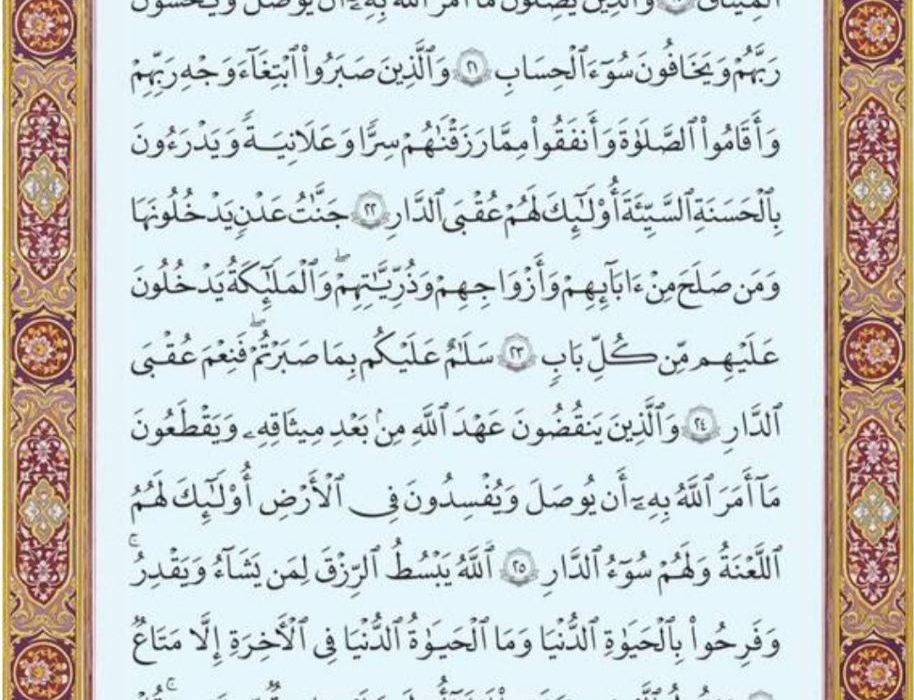 ٱلْمِيثَٰقَ ٢٠ وَٱلَّذِينَ يَصِلُونَ مَآ أَمَرَ ٱللَّهُ بِهِۦٓ أَن يُوصَلَ وَيَخْشَوْنَ
رَبَّهُمْ وَيَخَافُونَ سُوٓءَ ٱلْحِسَابِ ٢١ وَٱلَّذِينَ صَبَرُوا۟ ٱبْتِغَآءَ وَجْهِ رَبِّهِمْ
وَأَقَامُوا۟ ٱلصَّلَوٰةَ وَأَنفَقُوا۟ مِمَّا رَزَقْنَٰهُمْ سِرًّا وَعَلَانِيَةً وَيَدْرَءُونَ
بِٱلْحَسَنَةِ ٱلسَّيِّئَةَ أُو۟لَٰٓئِكَ لَهُمْ عُقْبَى ٱلدَّارِ ٢٢ جَنَّٰتُ عَدْنٍ يَدْخُلُونَهَا
وَمَن صَلَحَ مِنْ ءَابَآئِهِمْ وَأَزْوَٰجِهِمْ وَذُرِّيَّٰتِهِمْ ۖ وَٱلْمَلَٰٓئِكَةُ يَدْخُلُونَ
عَلَيْهِم مِّن كُلِّ بَابٍ ٢٣ سَلَٰمٌ عَلَيْكُم بِمَا صَبَرْتُمْ ۖ فَنِعْمَ عُقْبَى
ٱلدَّارِ ٢٤ وَٱلَّذِينَ يَنقُضُونَ عَهْدَ ٱللَّهِ مِنۢ بَعْدِ مِيثَٰقِهِۦ وَيَقْطَعُونَ
مَآ أَمَرَ ٱللَّهُ بِهِۦٓ أَن يُوصَلَ وَيُفْسِدُونَ فِى ٱلْأَرْضِ أُو۟لَٰٓئِكَ لَهُمُ
ٱللَّعْنَةُ وَلَهُمْ سُوٓءُ ٱلدَّارِ ٢٥ ٱللَّهُ يَبْسُطُ ٱلرِّزْقَ لِمَن يَشَآءُ وَيَقْدِرُ ۚ
وَفَرِحُوا۟ بِٱلْحَيَوٰةِ ٱلدُّنْيَا وَمَا ٱلْحَيَوٰةُ ٱلدُّنْيَا فِى ٱلْءَاخِرَةِ إِلَّا مَتَٰعٌ